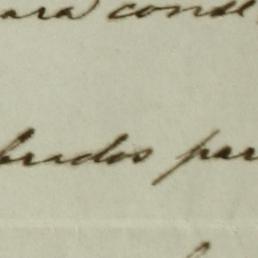 ara conse
brados par